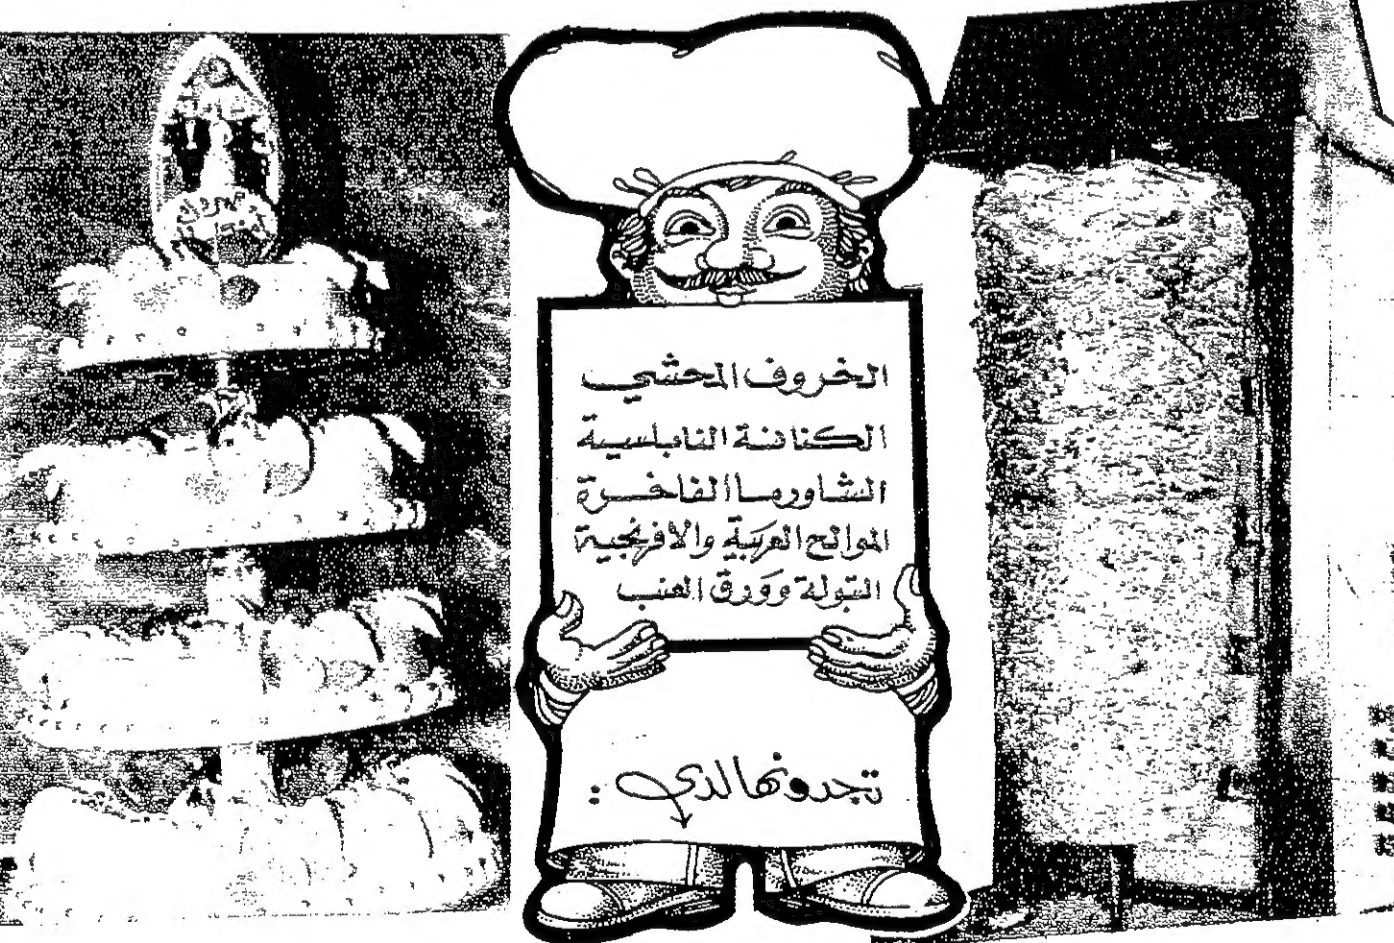 الخروف المحشي
الكنافة النابلسية
الشاورما الفاخرة
الموالح العربية والافرنجية
التبولة وورق العنب
تجدونها لدى :